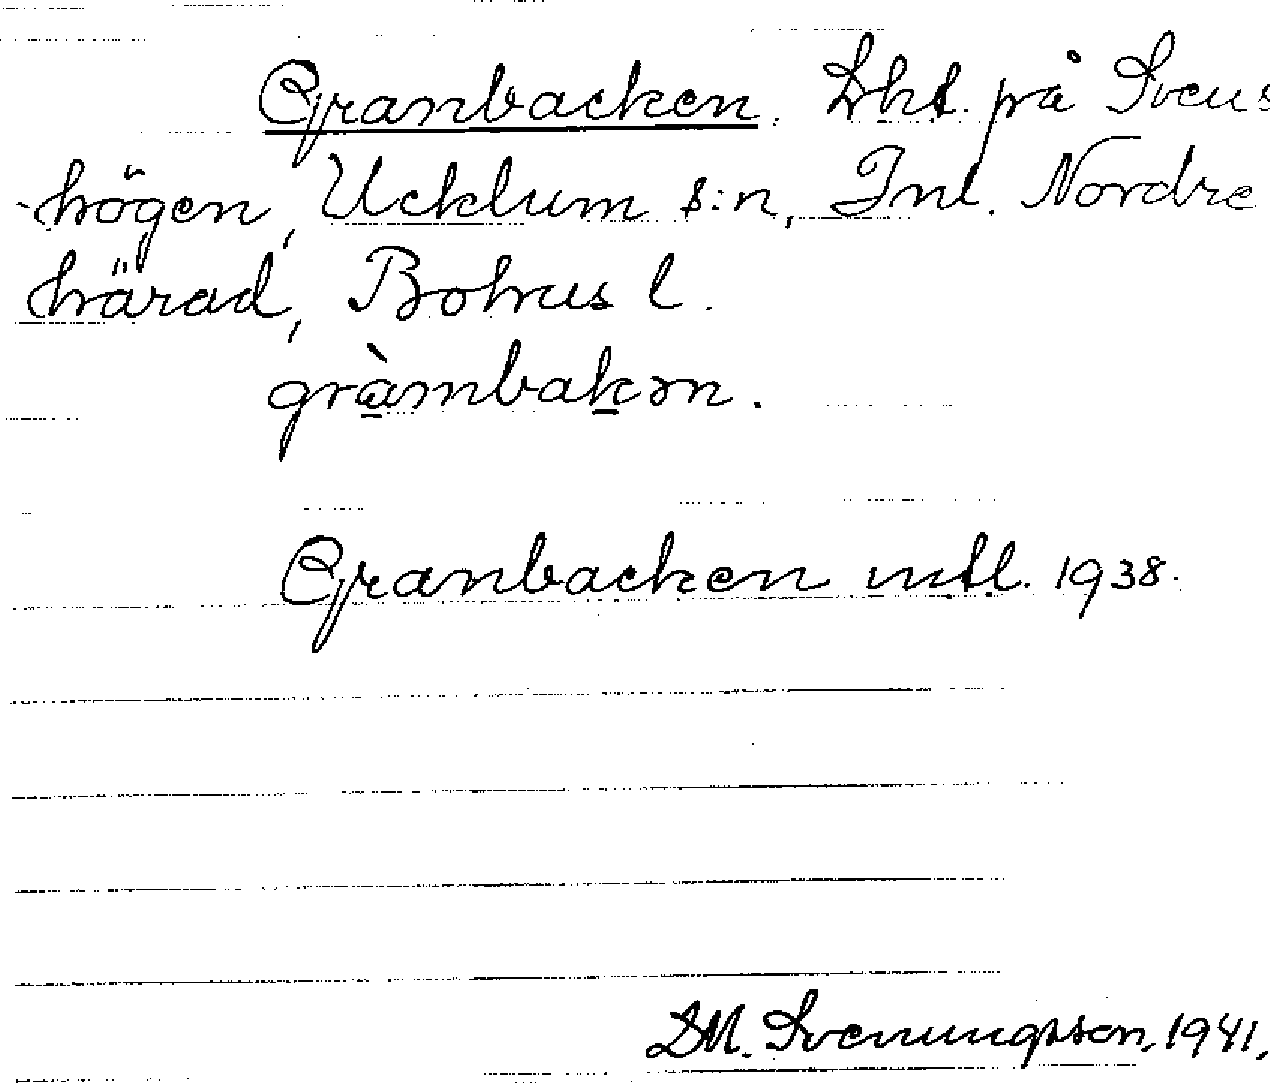 Granbacken. Lht. på Svens
-högen, Ucklum s:n, Inl. Nordre
härad, Bohus l.
gràmbakən.
Granbacken mtl. 1938.
D.M. Svenungsson, 1941.